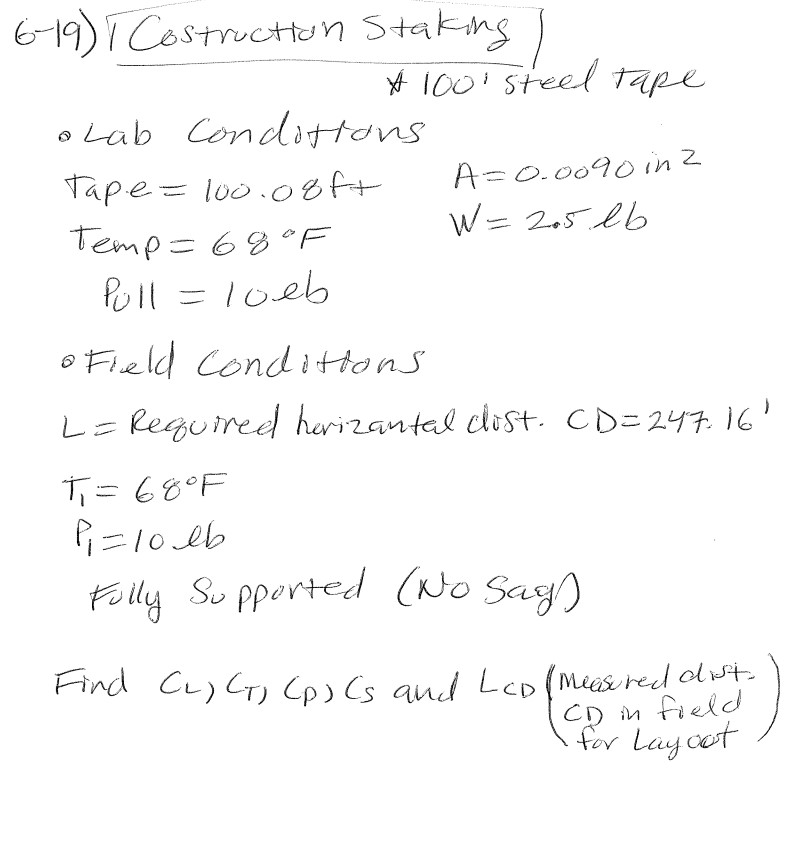 6-19) Costruction Staking
* 100' steel tape
• Lab Conditions
Tape = 100.08ft
A = 0.0090 in²
Temp = 68°F
W = 2.5 lb
Pull = 10lb
• Field Conditions
L = Required horizantal dist. CD = 247.16'
T₁ = 68°F
P₁ = 10 lb
Fully Supported (No Sag)
Find CL, CT, CP, CS and LCD (Measured dist.
CD in field
for Layout)